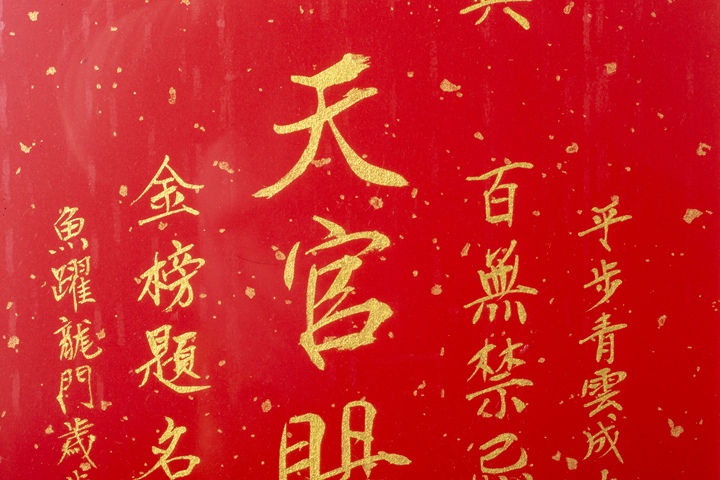 平步青雲成
百無禁忌
天官賜
金榜題名
魚躍龍門歲